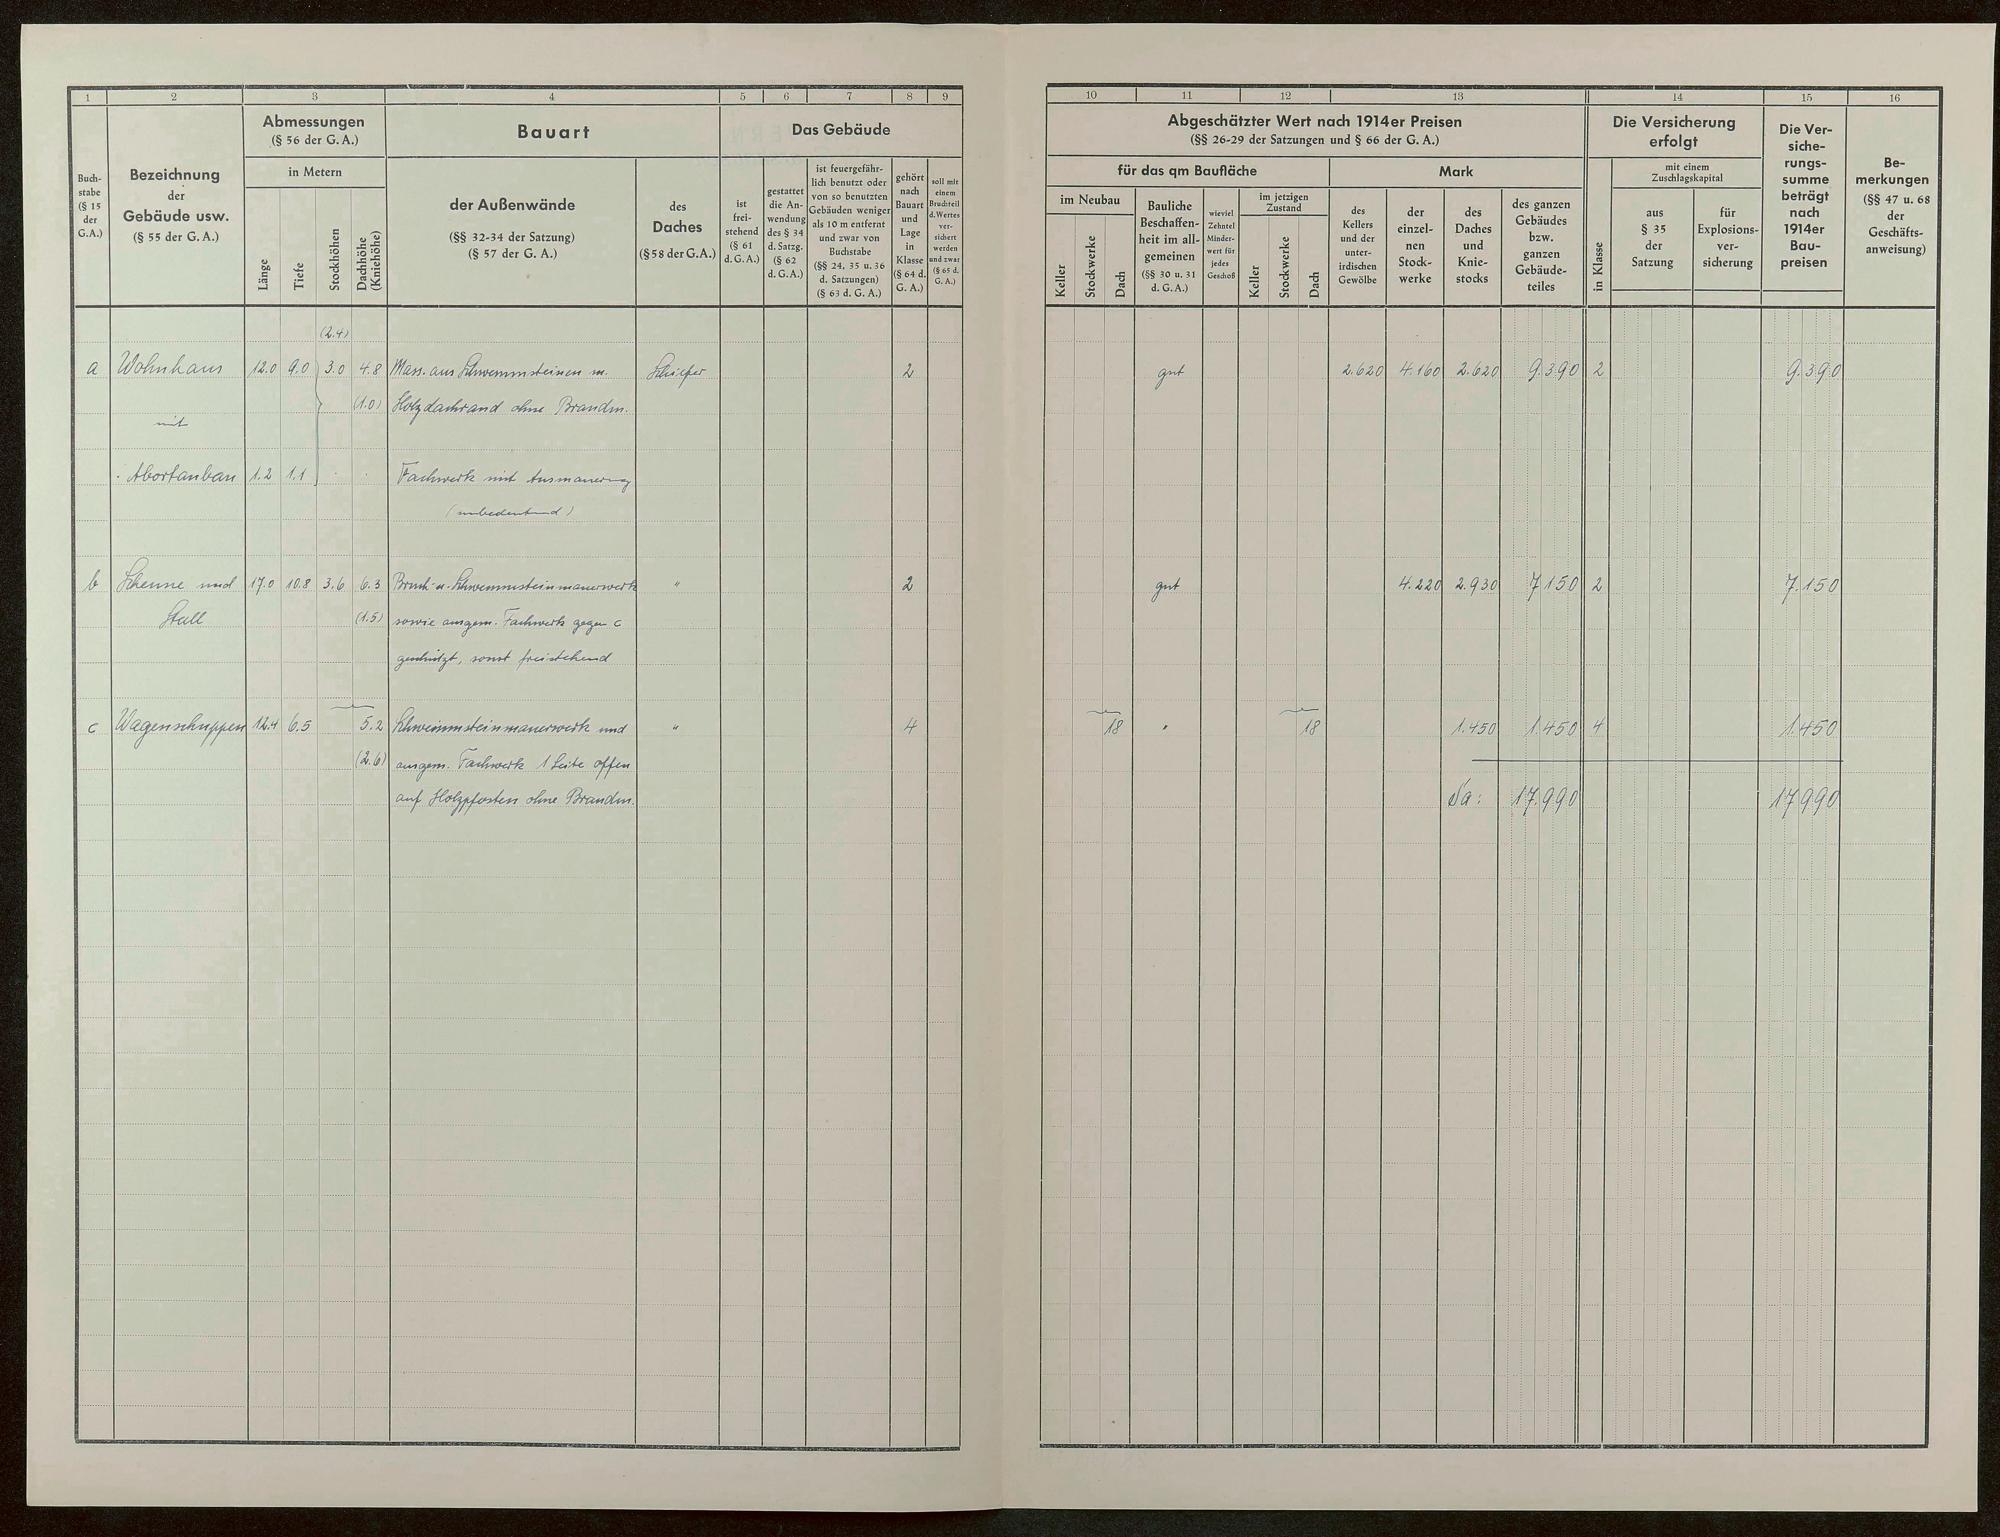 1 2 3 4 5 6 7 8 9
Buch-
stabe
(§ 15
der
G.A.)
Bezeichnung
der
Gebäude usw.
(§ 55 der G. A.)
Abmessungen
(§ 56 der G. A.)
in Metern
Länge
Tiefe
Stockhöhen
Dachhöhe
(Kniehöhe)
Bauart
der Außenwände
(§§ 32-34 der Satzung)
(§ 57 der G. A.)
des
Daches
(§ 58 der G. A.)
Das Gebäude
ist
frei-
stehend
(§ 61
d. G. A.)
gestattet
die An-
wendung
des § 34
d. Satzg.
(§ 62
d. G. A.)
ist feuergefähr-
lich benutzt oder
von so benutzten
Gebäuden weniger
als 10 m entfernt
und zwar von
Buchstabe
(§§ 24, 35 u. 36
d. Satzungen)
(§ 63 d. G. A.)
gehört
nach
Bauart
und
Lage
in
Klasse
(§ 64 d.
G. A.)
soll mit
einem
Bruchteil
d. Wertes
ver-
sichert
werden
und zwar
(§ 65 d.
G. A.)
(2.4)
a Wohnhaus 12.0 9.0 3.0 4.8 Mass. aus Schwemmsteinen m. Schiefer 2
(1.0) Holzdachrand ohne Brandm.
mit
Abortanbau 1.2 1.1 Fachwerk mit Ausmauerung
(unbedeutend)
b Scheune und 17.0 10.8 3.6 6.3 Bruch- u. Schwemmsteinmauerwerk " 2
Stall (1.5) sowie ausgem. Fachwerk gegen c
geschützt, sonst freistehend
c Wagenschuppen 12.4 6.5 5.2 Schwemmsteinmauerwerk und " 4
(2.6) ausgem. Fachwerk 1 Seite offen
auf Holzpfosten ohne Brandm.
10 11 12 13 14 15 16
Abgeschätzter Wert nach 1914er Preisen
(§§ 26-29 der Satzungen und § 66 der G. A.)
für das qm Baufläche
im Neubau
Keller
Stockwerke
Dach
Bauliche
Beschaffen-
heit im all-
gemeinen
(§§ 30 u. 31
d. G. A.)
wieviel
Zehntel
Minder-
wert für
jedes
Geschoß
im jetzigen
Zustand
Keller
Stockwerke
Dach
Mark
des
Kellers
und der
unter-
irdischen
Gewölbe
der
einzel-
nen
Stock-
werke
des
Daches
und
Knie-
stocks
des ganzen
Gebäudes
bzw.
ganzen
Gebäude-
teiles
Die Versicherung
erfolgt
in Klasse
mit einem
Zuschlagskapital
aus
§ 35
der
Satzung
für
Explosions-
ver-
sicherung
Die Ver-
siche-
rungs-
summe
beträgt
nach
1914er
Bau-
preisen
Be-
merkungen
(§§ 47 u. 68
der
Geschäfts-
anweisung)
gut 2.620 4.160 2.620 9.390 2 9.390
gut 4.220 2.930 7.150 2 7.150
18 " 18 1.450 1.450 4 1.450
Sa: 17.990 17990